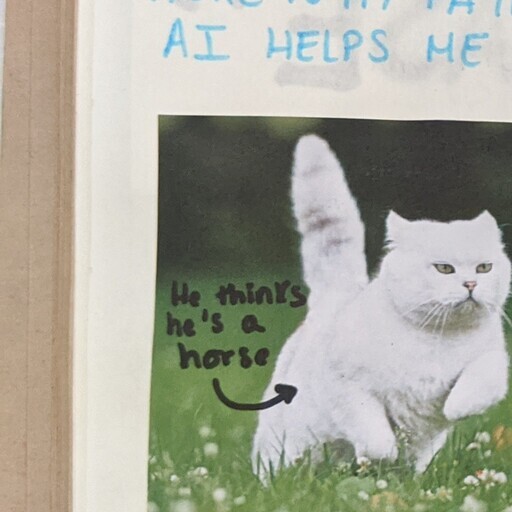 AI HELPS ME
He thinks
he's a
horse